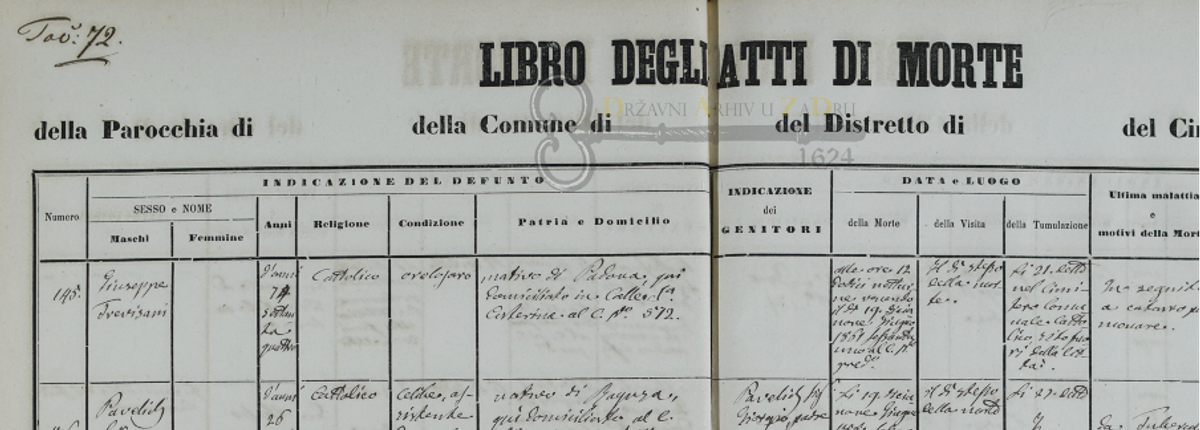 Tav. 72.
LIBRO DEGLI ATTI DI MORTE
DRŽAVNI ARHIV U ZADRU
1624
della Parocchia di della Comune di del Distretto di del Cir
INDICAZIONE DEL DEFUNTO
Numero
SESSO e NOME
Maschi
Femmine
Anni
Religione
Condizione
Patria e Domicilio
INDICAZIONE
dei
GENITORI
DATA e LUOGO
della Morte
della Visita
della Tumulazione
Ultima malattia
e
motivi della Mort
145.
Giuseppe
Trevisani
d'anni
74
settan
ta
quattro
Cattolico
orologiaro
nativo di Padova, qui
domiciliato in Calle
Caterina al C. 572.
alle ore 12
dodici nottur
il dì 19
nove Giugno
1861
uno
Il dì stesso
della mor
te.
Li 21
nel Cimi
tero Comu
nale Catto
lico, sito fuo
ri della Cit
tà.
In seguito
a catarro pol
monare.
Pavelich
d'anni
26
Cattolico
Celibe, as
sistente
nativo di Ragusa,
qui domiciliato al C.
Pavelich
Giorgio, padre
Li 19
nove Giugno
il dì stesso
della morte
Li 21
da Tuberco